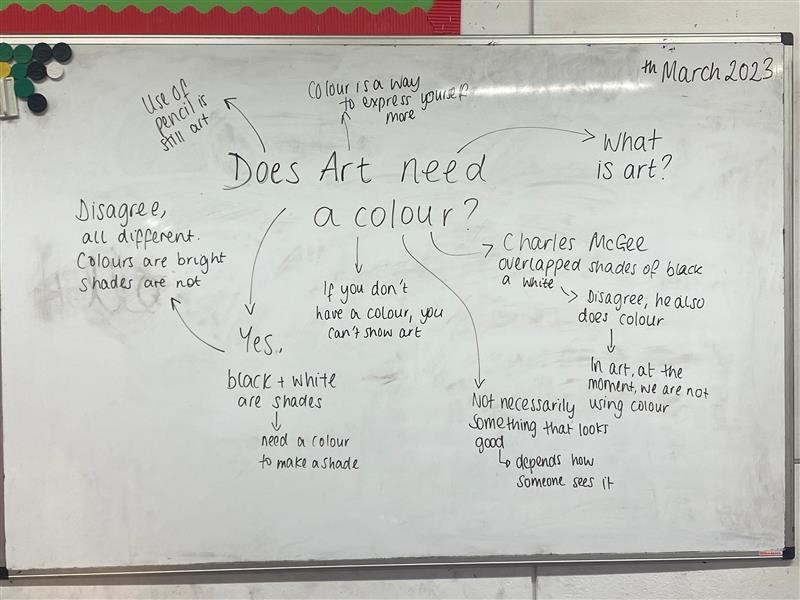 th March 2023
Use of
pencil is
still art
Colour is a way
to express yourself
more
Does Art need
a colour?
What
is art?
Disagree,
all different.
Colours are bright
shades are not
Yes,
black + white
are shades
need a colour
to make a shade
If you don't
have a colour, you
can't show art
Charles McGee
overlapped shades of black
a white
Disagree, he also
does colour
In art, at the
moment, we are not
using colour
Not necessarily
something that looks
good
depends how
someone sees it